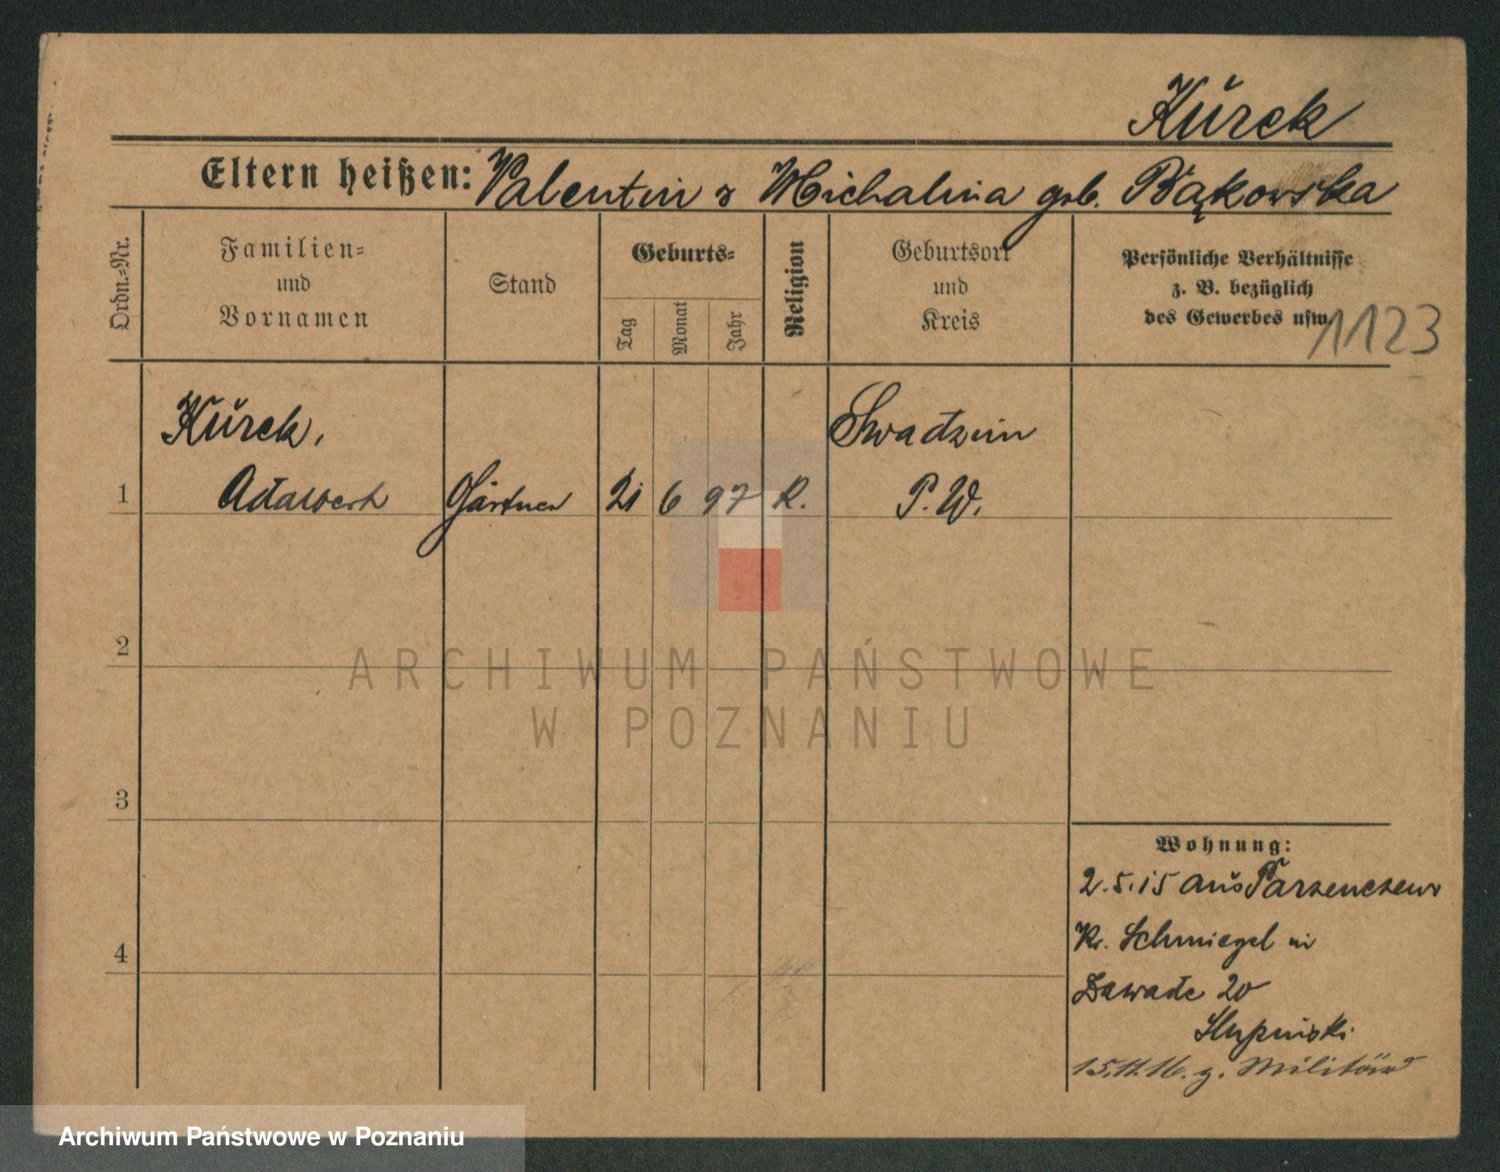 Kurek
Eltern heißen: Valentin u Michalina geb. Bąkowska
Ordn.-Nr.
Familien-
und
Vornamen
Stand
Geburts-
Tag
Monat
Jahr
Religion
Geburtsort
und
Kreis
Persönliche Verhältnisse
z. B. bezüglich
des Gewerbes usw.
1123
Kurek,
Swadzim
1 Adalbert Gärtner 21 6 97 K. P. W.
2
3
4
Wohnung:
2.5.15 aus Parzenczewo
Kr. Schmiegel in
Zawade 20
Slupinski
15.11.16. z. Militär
ARCHIWUM PAŃSTWOWE
W POZNANIU
Archiwum Państwowe w Poznaniu